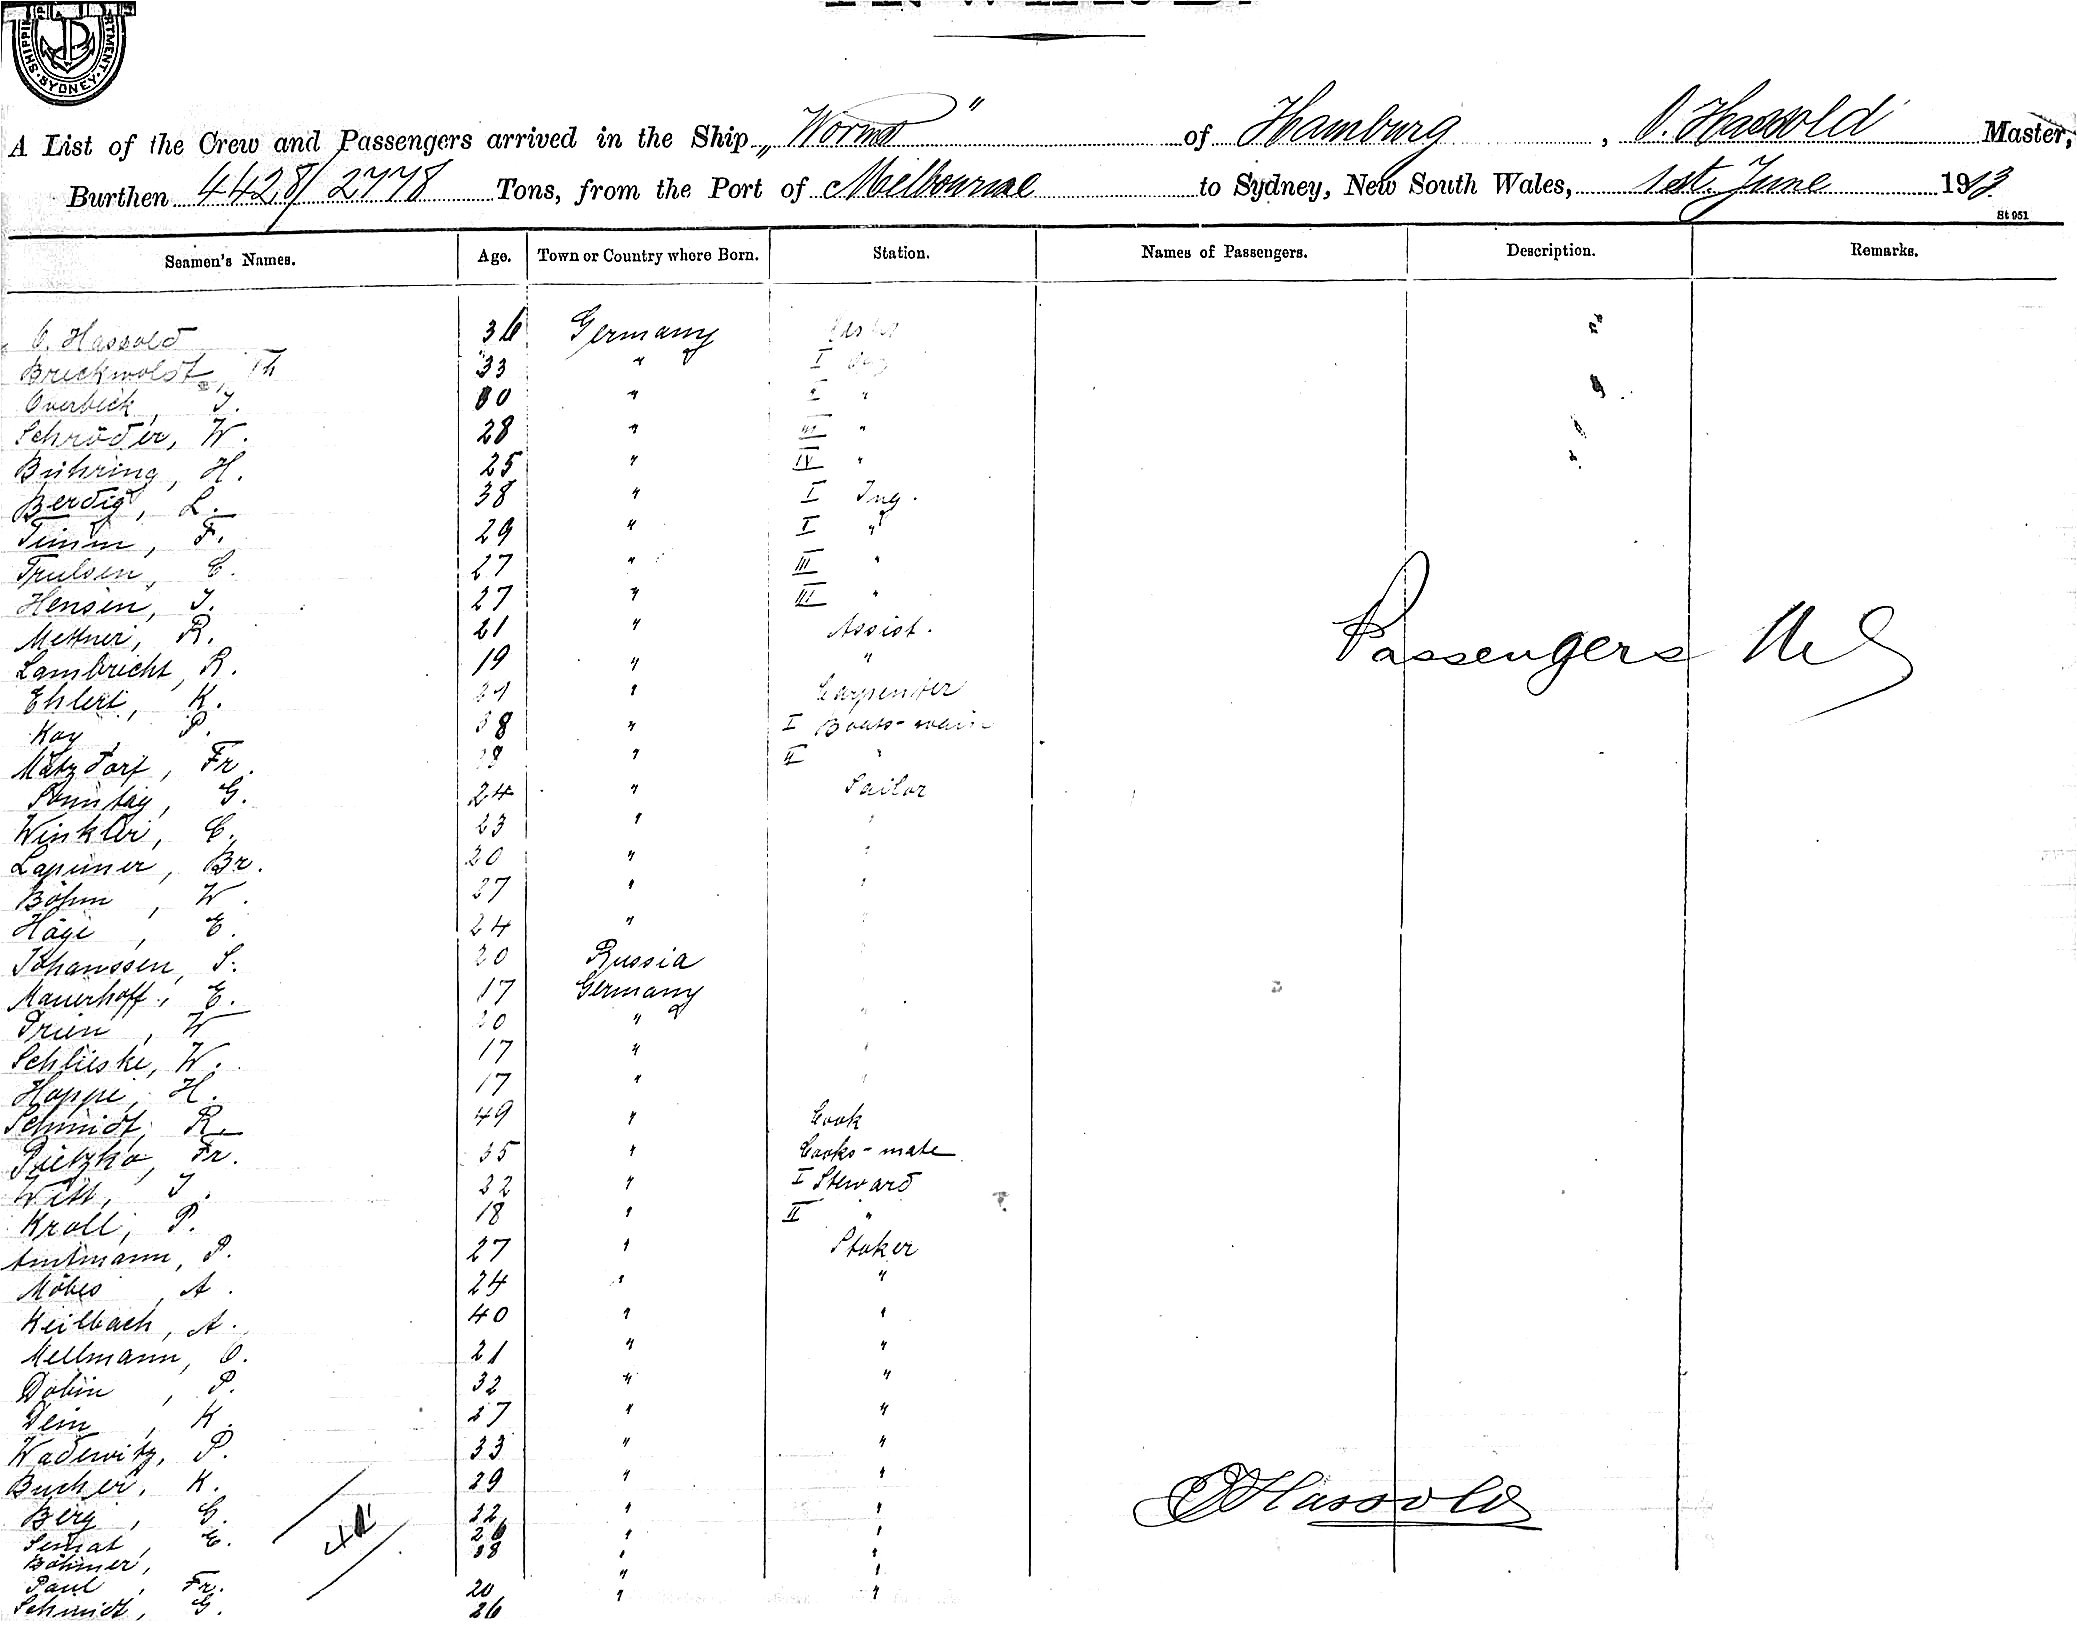 SYDNEY
A List of the Crew and Passengers arrived in the Ship „Worms" of Hamburg, O. Hassold Master,
Burthen 4428/2778 Tons, from the Port of Melbourne to Sydney, New South Wales, 1st June 1913.
St 951
Seamen's Names. Age. Town or Country where Born. Station. Names of Passengers. Description. Remarks.
O. Hassold 36 Germany
Brickwoldt, Th 33 " I
Overbeck, J. 30 " I "
Schröder, W. 28 " III "
Bühring, H. 25 " IV "
Berdig, L. 38 " I Ing.
Timm, F. 29 " I "
Trulsen, C. 27 " III "
Hensen, J. 27 " III "
Mettner, R. 21 " Assist.
Passengers Nil
Lambricht, R. 19 " "
Ehlert, K. " Carpenter
Kay, P. 38 " I Boats-wain
Matzdorf, Fr. " II "
Sonntag, G. 24 " Sailor
Winkler, C. 23 " "
Lapuner, Br. 20 " "
Böhm, W. 27 " "
Häge, E. 24 " "
Johanssen, S. 20 Russia
Mauerhoff, E. 17 Germany
Prien, W 20 " "
Schlieske, W. 17 " "
Hoppe, H. 17 " "
Schmidt, R. 49 " Cook
Pietzko, Fr. 35 " Cooks-mate
Witt, J. 32 " I Steward
Kroll, P. 18 " II "
Amtmann, P. 27 " Stoker
Möbes, A. 24 " "
Keilbach, A. 40 " "
Mellmann, O. 21 " "
Dobin, P. 32 " "
Dein, K. 27 " "
Wadewitz, P. 33 " "
Bucher, K. 29 " "
O Hassold
Berg, G. 32 " "
Semat, E. 26 " "
Böhmer, 38 " "
Paul, Fr. 20 " "
Schmidt, G. 26 " "